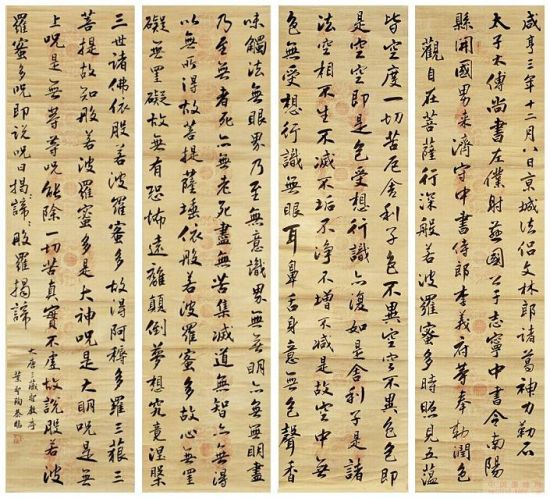 咸亨三年十二月八日京城法侶文林郎諸葛神力勒石
太子太傅尚書左僕射燕國公于志寧中書令南陽
縣開國男來濟守中書侍郎李義府等奉勅潤色
觀自在菩薩行深般若波羅蜜多時照見五蘊
皆空度一切苦厄舍利子色不異空空不異色色即
是空空即是色受想行識亦復如是舍利子是諸
法空相不生不滅不垢不淨不增不減是故空中無
色無受想行識無眼耳鼻舌身意無色聲香
味觸法無眼界乃至無意識界無無明亦無無明盡
乃至無老死亦無老死盡無苦集滅道無智亦無得
以無所得故菩提薩埵依般若波羅蜜多故心無罣
礙無罣礙故無有恐怖遠離顛倒夢想究竟涅槃
三世諸佛依般若波羅蜜多故得阿耨多羅三藐三
菩提故知般若波羅蜜多是大神咒是大明咒是無
上咒是無等等咒能除一切苦真實不虛故說般若波
羅蜜多咒即說咒曰揭諦〻般羅揭諦
大唐三藏聖教序